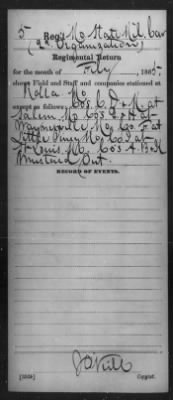 5 Reg't Mo State Mil. Cav
(2d Organization)
Regimental Return
for the month of Feby, 1865
shows Field and Staff and companies stationed at
Rolla Mo
except as follows: Cos. C, & M at
Salem, Mo Cos E & H at
Waynesville Mo; Co. F at
Little Piney Mo; Co. at
St Louis Mo. Cos A B & K
Mustered Out.
RECORD OF EVENTS.
Copyist.